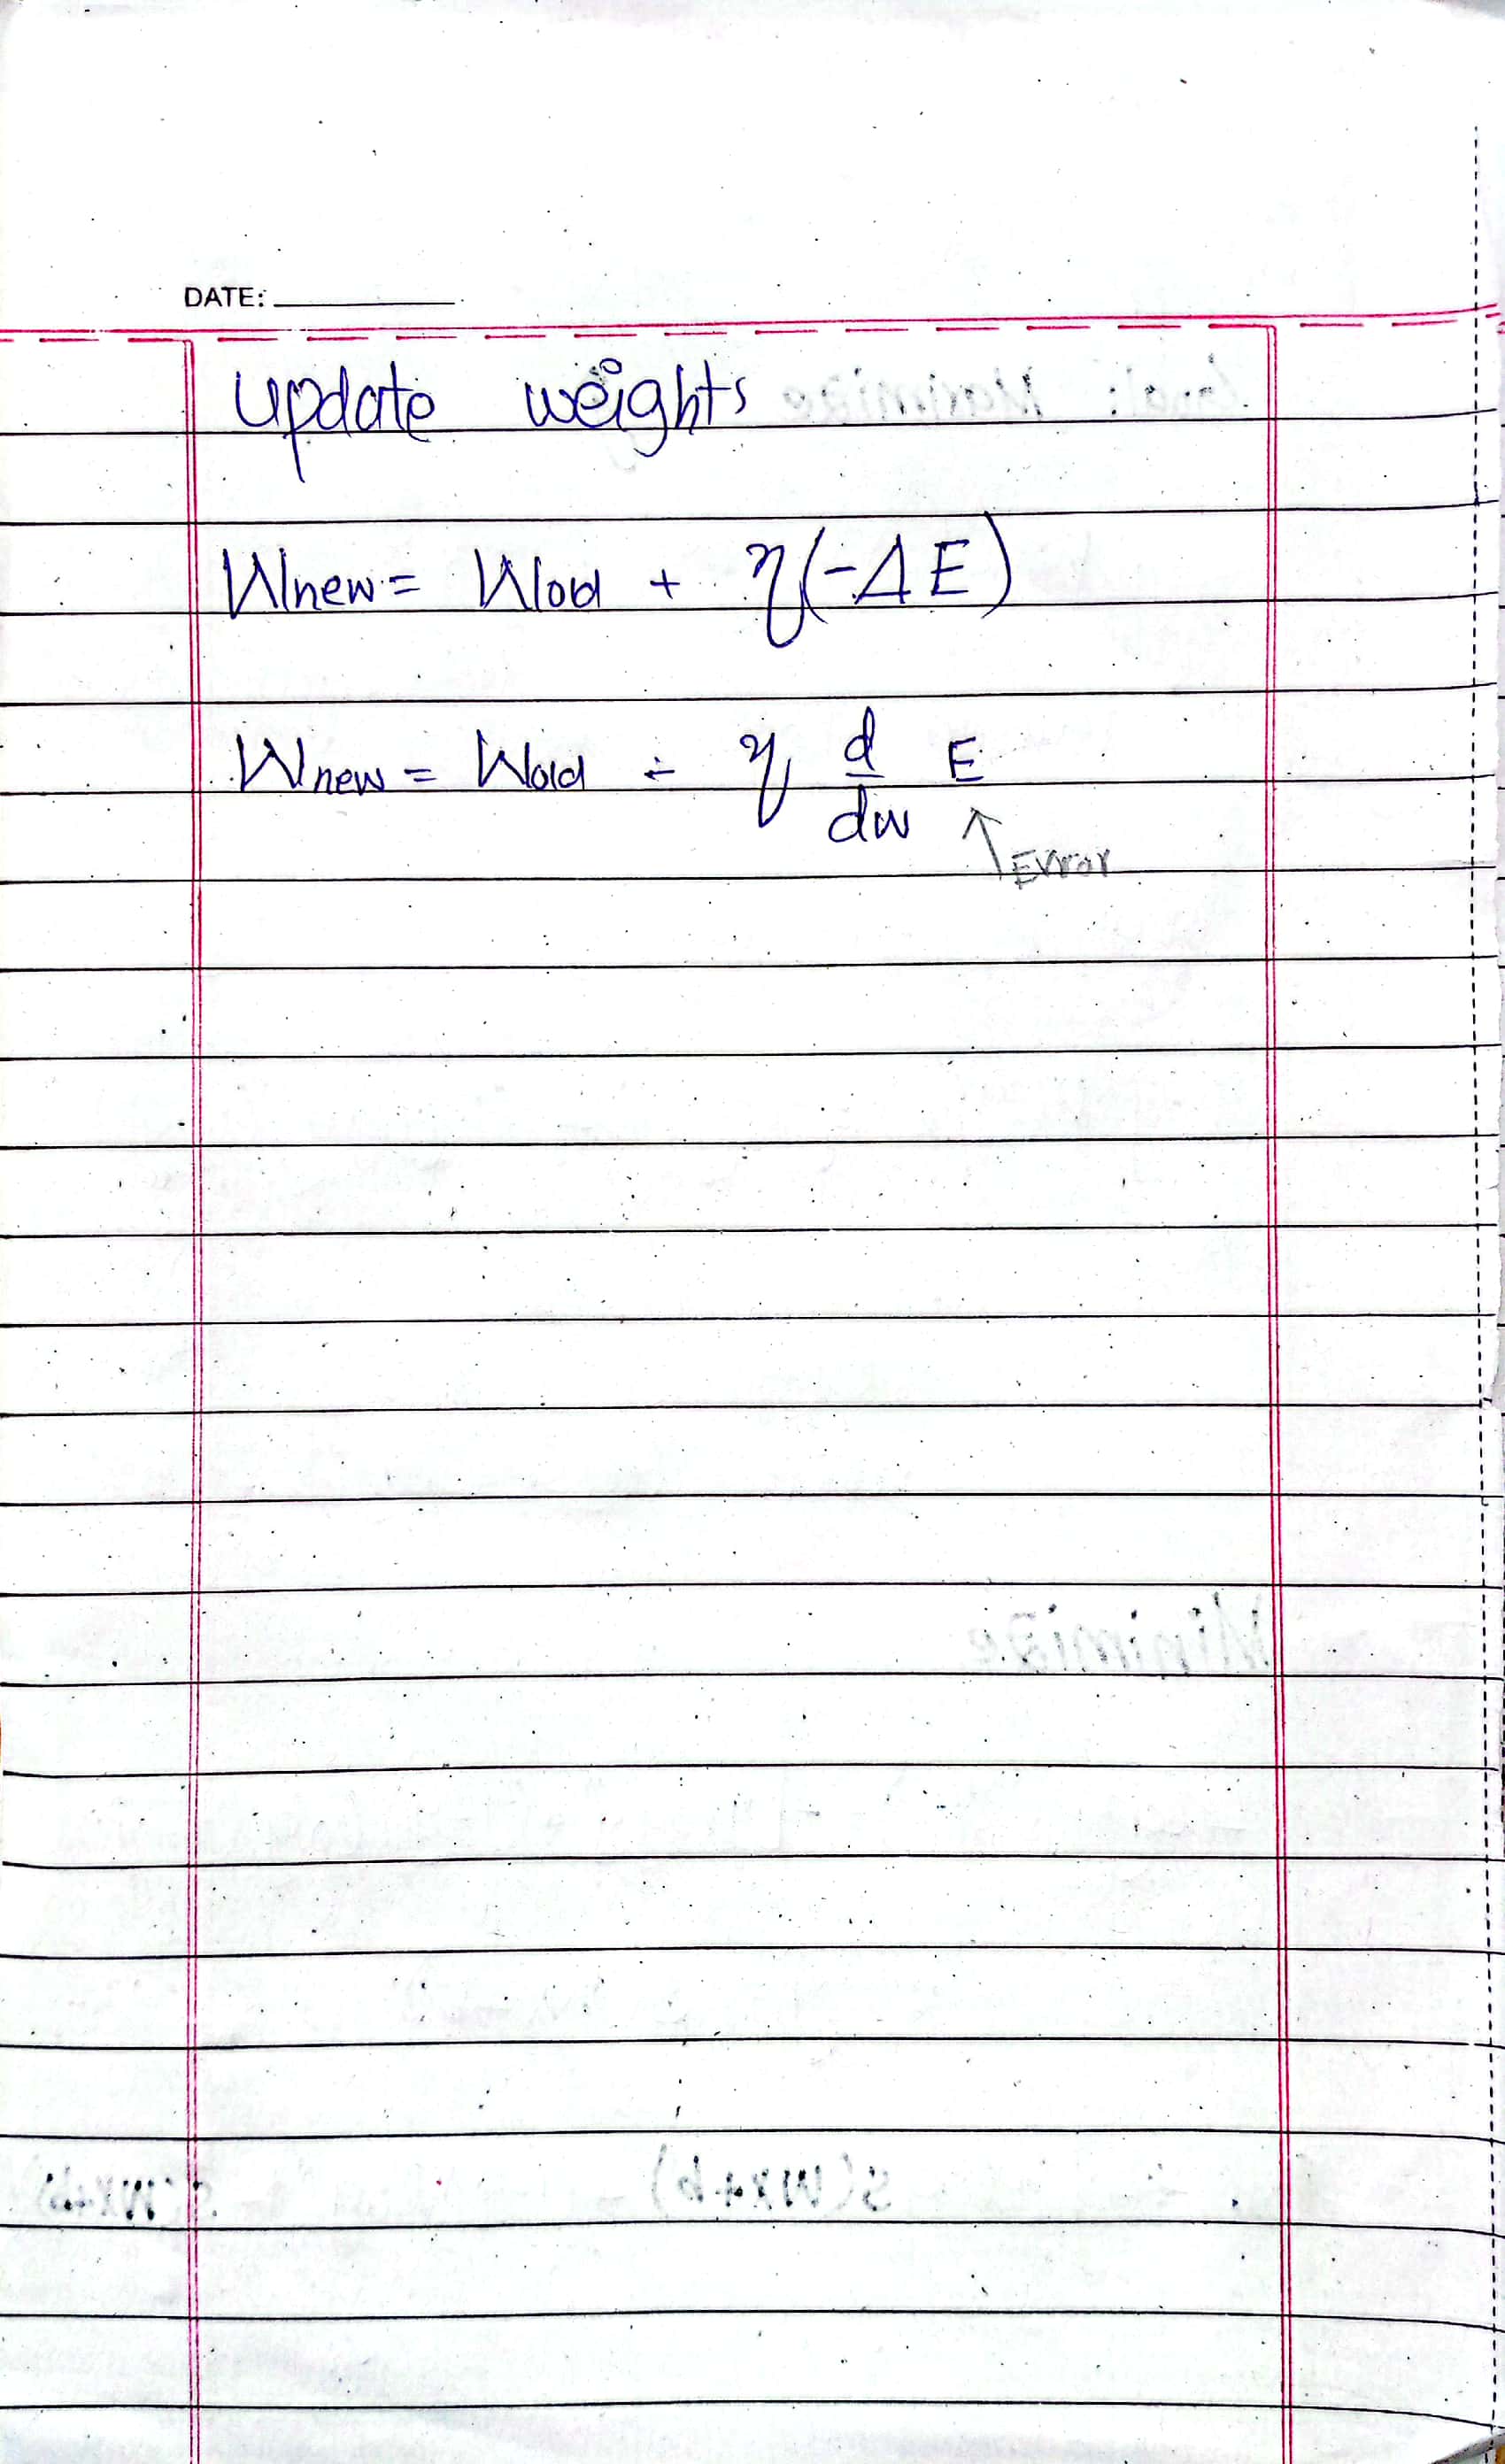 DATE:
Update weights
Wnew = Wold + η(-ΔE)
Wnew = Wold - η d/dw E
↑ Error